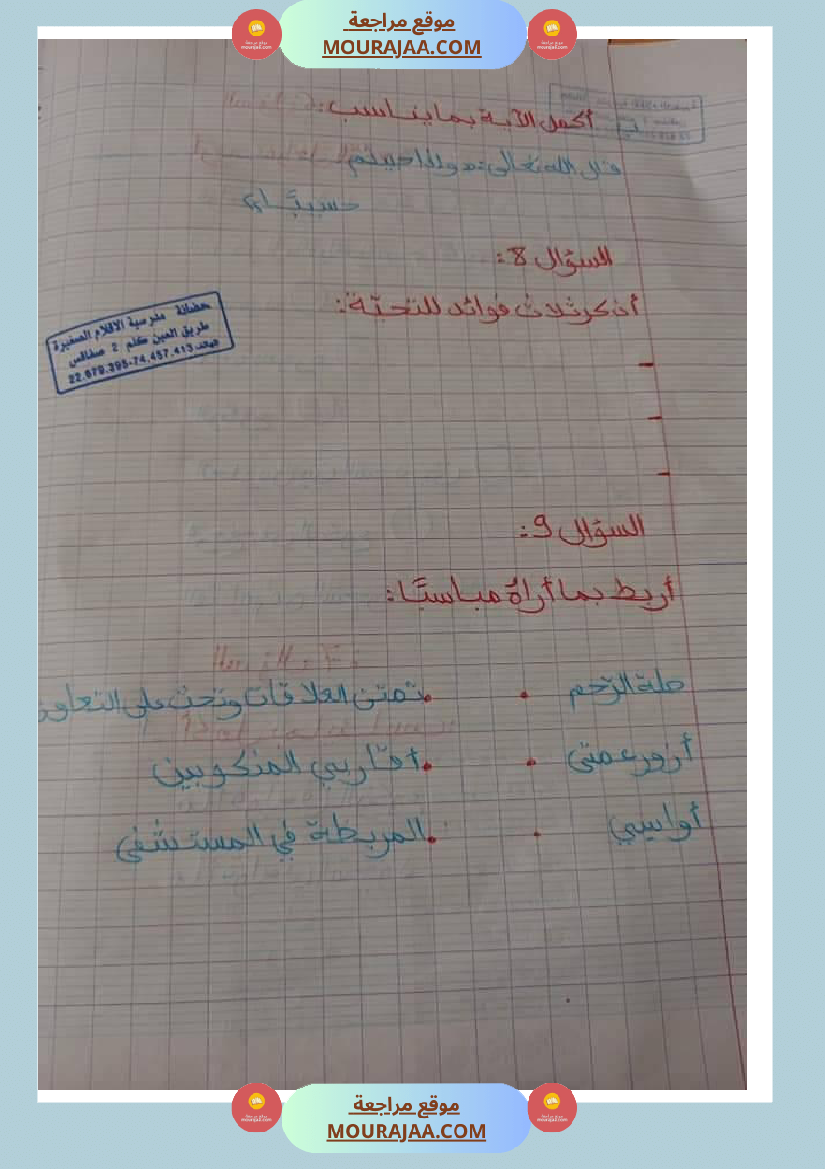 موقع مراجعة
MOURAJAA.COM
أكمل الآية بما يناسب:
قال الله تعالى: « وإذا حييتم
حسيبًا »
السؤال 8:
أذكر ثلاث فوائد للتحيّة:
حضانة مدرسية الاقلام الصغيرة
طريق العين كلم 2 صفاقس
الهاتف 74.457.413-22.679.395
-
-
-
السؤال 9:
أربط بما أراهُ مناسبًا:
صلة الرّحم • • تمتن العلاقات وتحث على التعاون
أزور عمتي • • أقاربي المنكوبين
أواسي • • المريضة في المستشفى
موقع مراجعة
MOURAJAA.COM